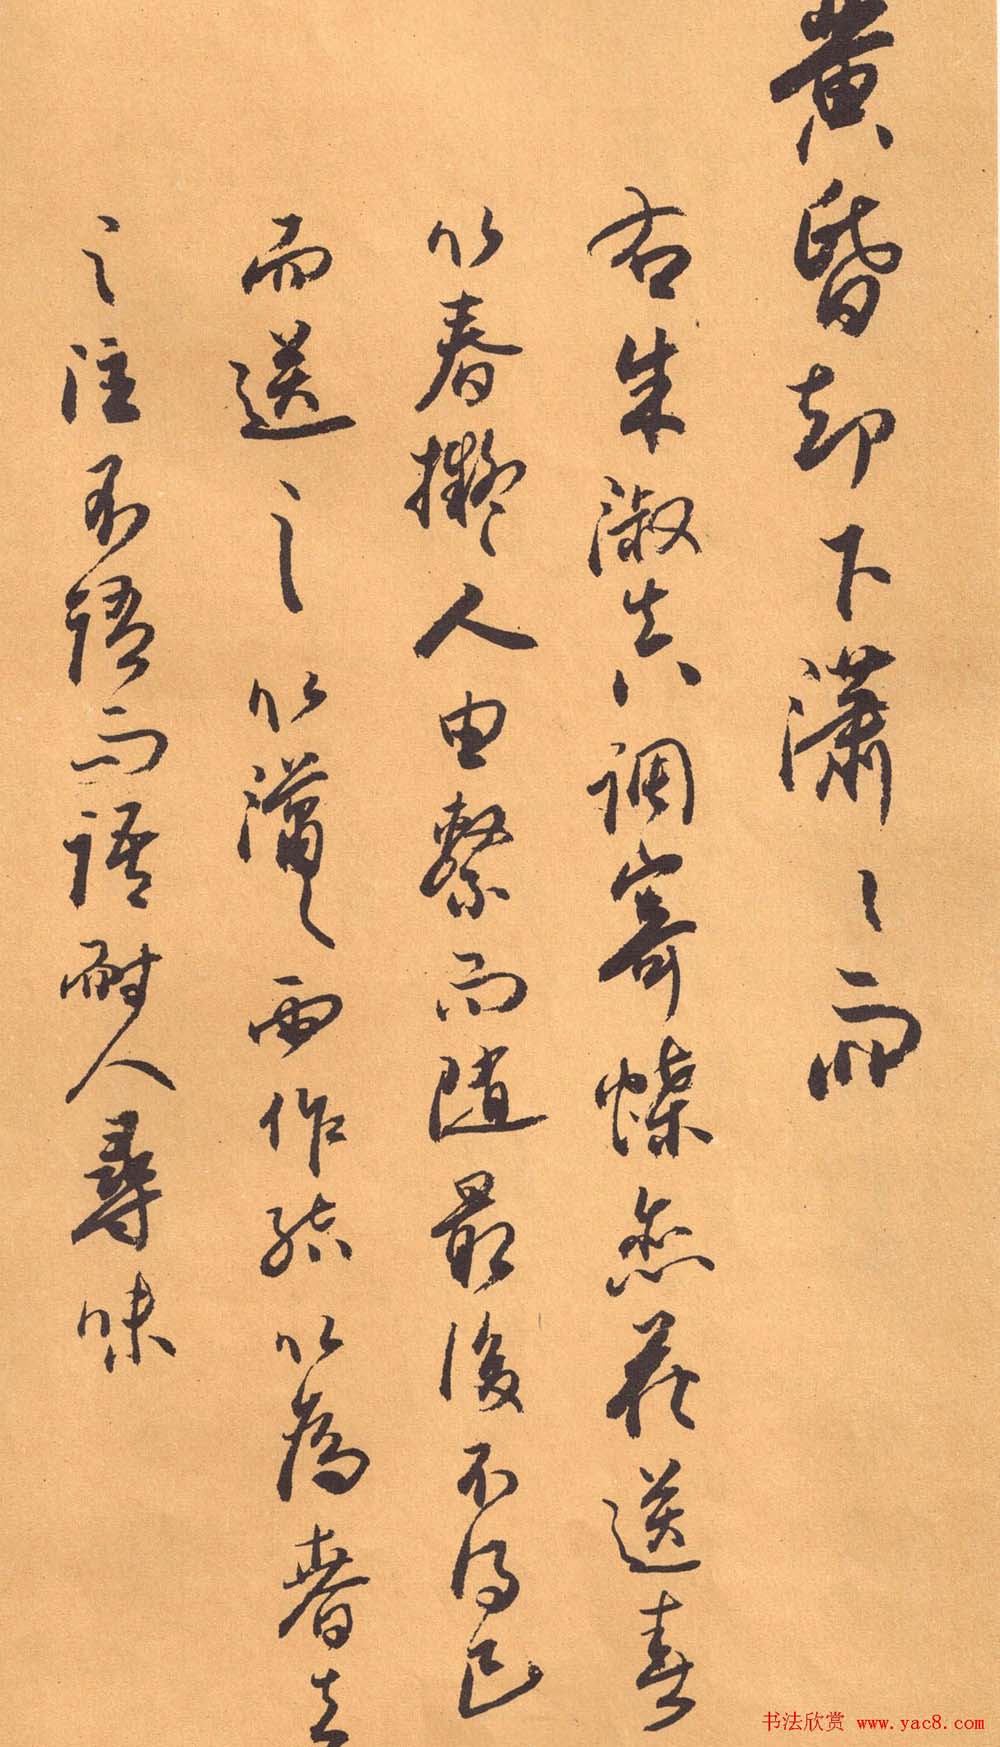 黄昏却下潇〻雨
右朱淑真调寄蝶恋花送春
以春擬人由繫而随最後不得已
而送之以潇〻雨作结以为春去
之注不语而语耐人尋味
书法欣赏 www.yac8.com